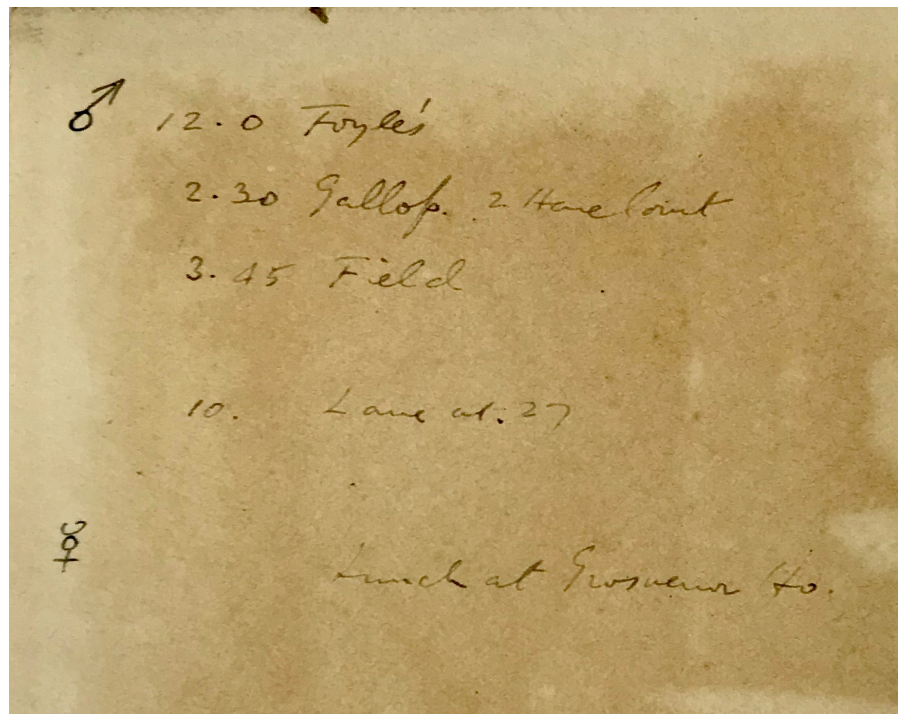 ♂ 12.0 Foyle's
2.30 Gallop. 2 Hare Court
3.45 Field
10. Lane at 27
☿
Lunch at Grosvenor Ho.